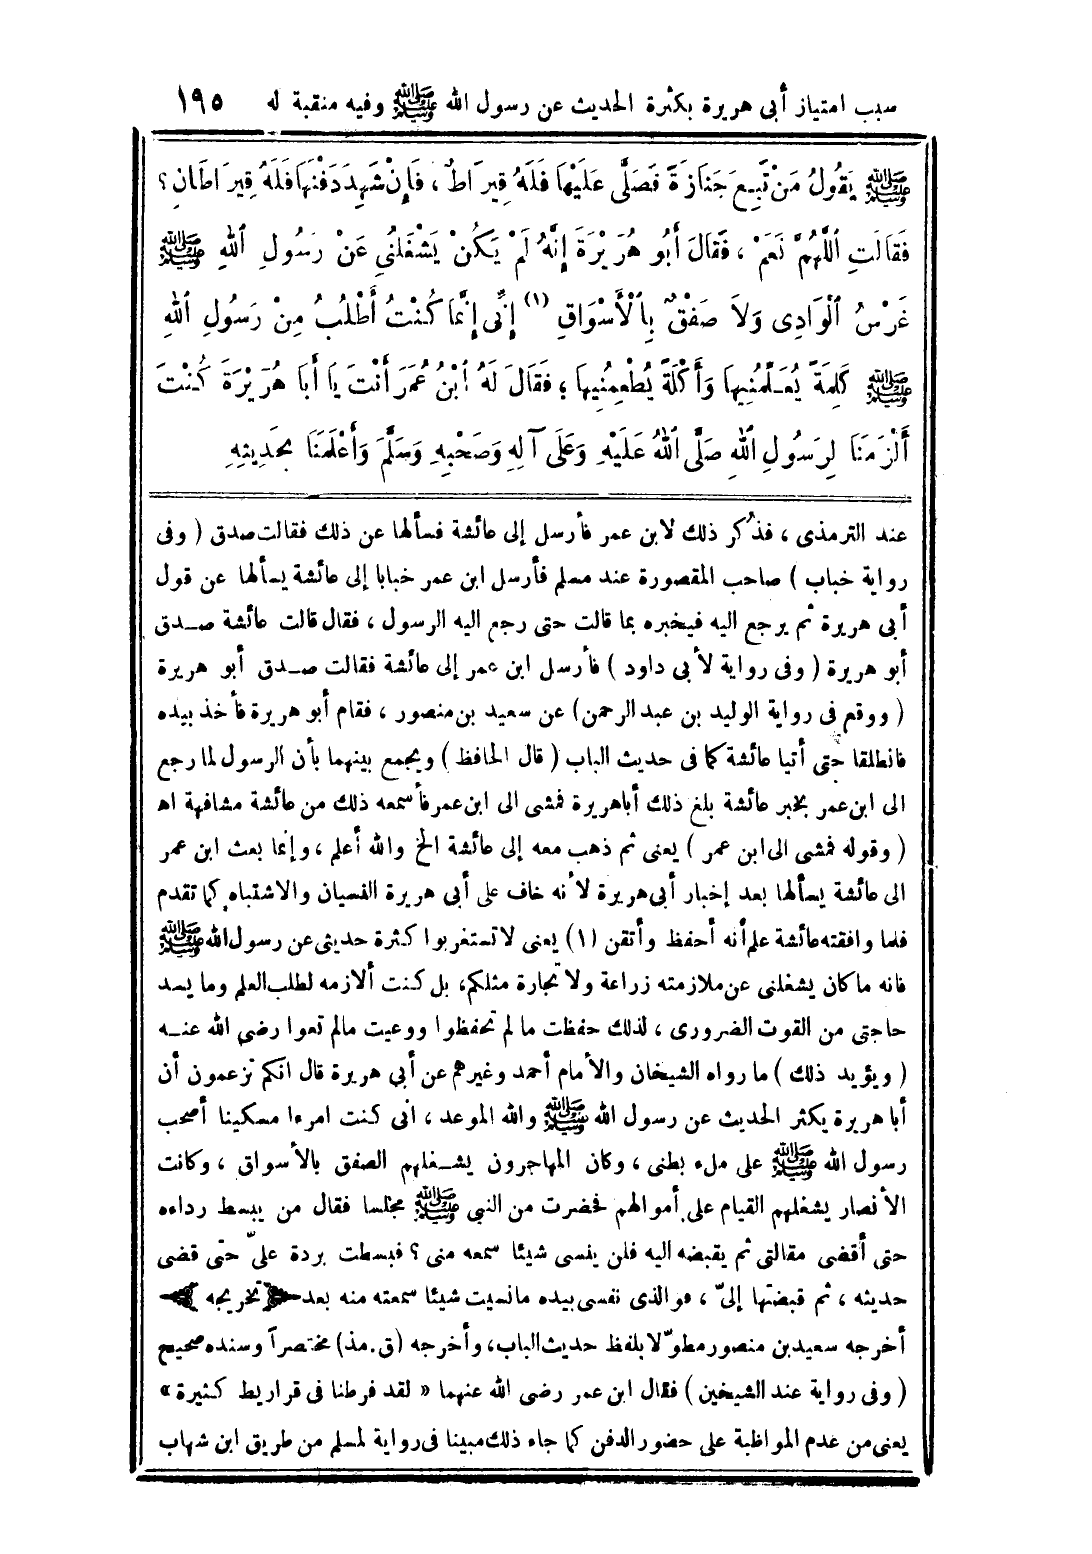 سبب امتياز أبى هريرة بكثرة الحديث عن رسول الله ﷺ وفيه منقبة له ١٩٥
ﷺ يَقُولُ مَنْ تَبِعَ جَنَازَةً فَصَلَّى عَلَيْهَا فَلَهُ قِيرَاطٌ ، فَإِنْ شَهِدَ دَفْنَهَا فَلَهُ قِيرَاطَانِ ؟
فَقَالَتِ ٱللَّهُمَّ نَعَمْ ، فَقَالَ أَبُو هُرَيْرَةَ إِنَّهُ لَمْ يَكُنْ يَشْغَلُنِي عَنْ رَسُولِ ٱللهِ ﷺ
غَرْسُ ٱلْوَادِى وَلَا صَفْقٌ بِٱلْأَسْوَاقِ (١) إِنِّى إِنَّمَا كُنْتُ أَطْلُبُ مِنْ رَسُولِ ٱللهِ
ﷺ كَلِمَةً يُعَلِّمُنِيهَا وَأَكْلَةً يُطْعِمُنِيهَا ؛ فَقَالَ لَهُ ٱبْنُ عُمَرَ أَنْتَ يَا أَبَا هُرَيْرَةَ كُنْتَ
أَلْزَمَنَا لِرَسُولِ ٱللهِ صَلَّى ٱللهُ عَلَيْهِ وَعَلَى آلِهِ وَصَحْبِهِ وَسَلَّمَ وَأَعْلَمَنَا بِحَدِيثِهِ
عند الترمذى ، فذُكر ذلك لابن عمر فأرسل إلى عائشة فسألها عن ذلك فقالت صدق ( وفى
رواية خباب ) صاحب المقصورة عند مسلم فأرسل ابن عمر خبابا إلى عائشة يسألها عن قول
أبى هريرة ثم يرجع اليه فيخبره بما قالت حتى رجع اليه الرسول ، فقال قالت عائشة صدق
أبو هريرة ( وفى رواية لأبى داود ) فأرسل ابن عمر إلى عائشة فقالت صدق أبو هريرة
( ووقع فى رواية الوليد بن عبد الرحمن ) عن سعيد بن منصور ، فقام أبو هريرة فأخذ بيده
فانطلقا حتى أتيا عائشة كما فى حديث الباب ( قال الحافظ ) ويجمع بينهما بأن الرسول لما رجع
الى ابن عمر بخبر عائشة بلغ ذلك أباهريرة فمشى الى ابن عمر فأسمعه ذلك من عائشة مشافهة اه
( وقوله فمشى الى ابن عمر ) يعنى ثم ذهب معه إلى عائشة الخ والله أعلم ، وإنما بعث ابن عمر
الى عائشة يسألها بعد إخبار أبى هريرة لأنه خاف على أبى هريرة النسيان والاشتباه كما تقدم
فلما وافقته عائشة علم أنه أحفظ وأتقن (١) يعنى لا تستغربوا كثرة حديثى عن رسول الله ﷺ
فانه ما كان يشغلنى عن ملازمته زراعة ولا تجارة مثلكم، بل كنت ألازمه لطلب العلم وما يسد
حاجتى من القوت الضرورى ، لذلك حفظت ما لم تحفظوا ووعيت مالم تعوا رضى الله عنه
( ويؤيد ذلك ) ما رواه الشيخان والأمام أحمد وغيرهم عن أبى هريرة قال انكم تزعمون أن
أبا هريرة يكثر الحديث عن رسول الله ﷺ والله الموعد ، انى كنت امرءا مسكينا أصحب
رسول الله ﷺ على ملء بطنى ، وكان المهاجرون يشغلهم الصفق بالأسواق ، وكانت
الأنصار يشغلهم القيام على أموالهم فحضرت من النبى ﷺ مجلسا فقال من يبسط رداءه
حتى أقضى مقالتى ثم يقبضه اليه فلن ينسى شيئا سمعه منى ؟ فبسطت بردة علىّ حتى قضى
حديثه ، ثم قبضتها إلىّ ، فوالذى نفسى بيده مانسيت شيئا سمعته منه بعد ﴿ تخريجه ﴾
أخرجه سعيد بن منصور مطوّلا بلفظ حديث الباب، وأخرجه (ق . مذ) مختصراً وسنده صحيح
( وفى رواية عند الشيخين ) فقال ابن عمر رضى الله عنهما « لقد فرطنا فى قراريط كثيرة »
يعنى من عدم المواظبة على حضور الدفن كما جاء ذلك مبينا فى رواية لمسلم من طريق ابن شهاب